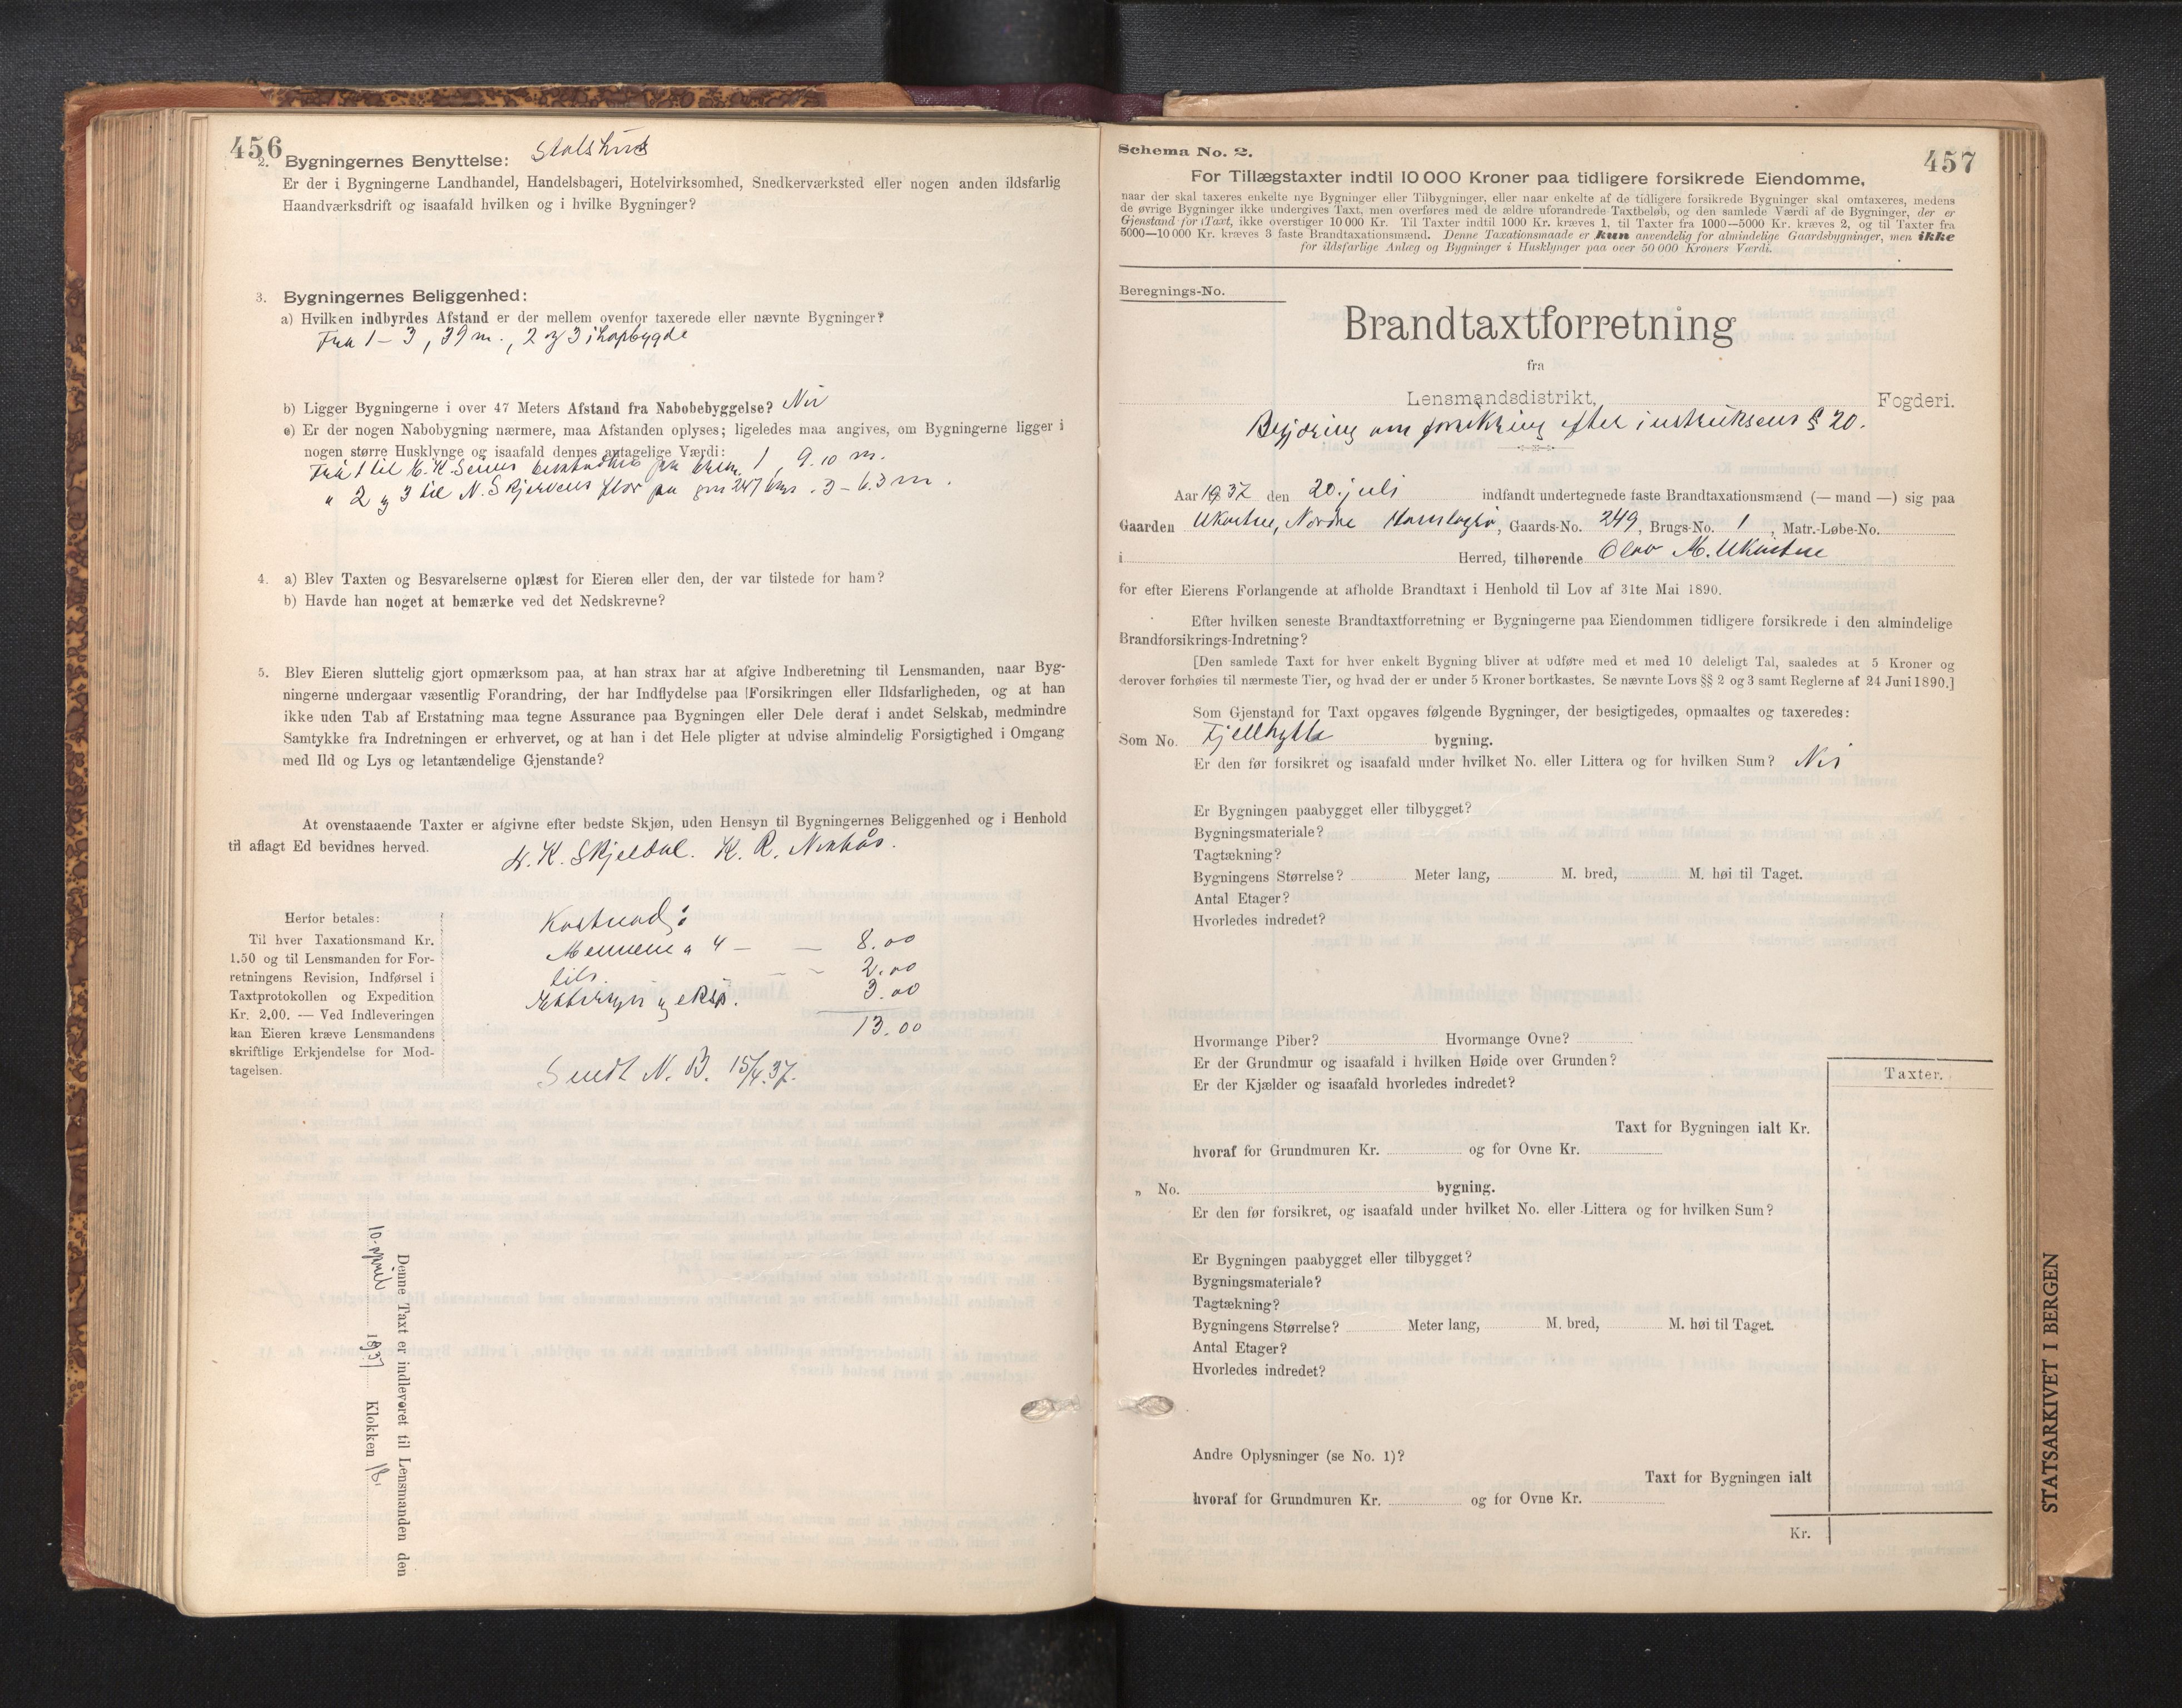 456
2. Bygningernes Benyttelse: Stølshus
Er der i Bygningerne Landhandel, Handelsbageri, Hotelvirksomhed, Snedkerværksted eller nogen anden ildsfarlig
Haandværksdrift og isaafald hvilken og i hvilke Bygninger?
3. Bygningernes Beliggenhed:
a) Hvilken indbyrdes Afstand er der mellem ovenfor taxerede eller nævnte Bygninger?
Frå 1 – 3, 39 m., 2 og 3 ihopbygde
b) Ligger Bygningerne i over 47 Meters Afstand fra Nabobebyggelse? Nei
c) Er der nogen Nabobygning nærmere, maa Afstanden oplyses; ligeledes maa angives, om Bygningerne ligger i
nogen større Husklynge og isaafald dennes antagelige Værdi:
Frå 1 til K. K. 1, 9.10 m.
" 2 og 3 til N. Skjervens flor på gnr 247 bnr. 3 – 6.3 m.
4. a) Blev Taxten og Besvarelserne oplæst for Eieren eller den, der var tilstede for ham?
b) Havde han noget at bemærke ved det Nedskrevne?
5. Blev Eieren sluttelig gjort opmærksom paa, at han strax har at afgive Indberetning til Lensmanden, naar Byg-
ningerne undergaar væsentlig Forandring, der har Indflydelse paa Forsikringen eller Ildsfarligheden, og at han
ikke uden Tab af Erstatning maa tegne Assurance paa Bygningen eller Dele deraf i andet Selskab, medmindre
Samtykke fra Indretningen er erhvervet, og at han i det Hele pligter at udvise almindelig Forsigtighed i Omgang
med Ild og Lys og letantændelige Gjenstande?
At ovenstaaende Taxter er afgivne efter bedste Skjøn, uden Hensyn til Bygningernes Beliggenhed og i Henhold
til aflagt Ed bevidnes herved.
K. Skjeldal. K. R. Nesthås.
Herfor betales:
Til hver Taxationsmand Kr.
1.50 og til Lensmanden for For-
retningens Revision, Indførsel i
Taxtprotokollen og Expedition
Kr. 2.00. — Ved Indleveringen
kan Eieren kræve Lensmandens
skriftlige Erkjendelse for Mod-
tagelsen.
Kostnad:
Mennene a 4 — — 8.00
lils. — 2.00
Ettersyn og eksp. 3.00
13.00
Sendt N. B. 15/4.37.
Denne Taxt er indleveret til Lensmanden den
10. april 1937 Klokken 18.
Schema No. 2.
457
For Tillægstaxter indtil 10 000 Kroner paa tidligere forsikrede Eiendomme,
naar der skal taxeres enkelte nye Bygninger eller Tilbygninger, eller naar enkelte af de tidligere forsikrede Bygninger skal omtaxeres, medens
de øvrige Bygninger ikke undergives Taxt, men overføres med de ældre uforandrede Taxtbeløb, og den samlede Værdi af de Bygninger, der er
Gjenstand for Taxt, ikke overstiger 10 000 Kr. Til Taxter indtil 1000 Kr. kræves 1, til Taxter fra 1000—5000 Kr. kræves 2, og til Taxter fra
5000—10 000 Kr. kræves 3 faste Brandtaxationsmænd. Denne Taxationsmaade er kun anvendelig for almindelige Gaardsbygninger, men ikke
for ildsfarlige Anlæg og Bygninger i Husklynger paa over 50 000 Kroners Værdi.
Beregnings-No.
Brandtaxtforretning
fra
Lensmandsdistrikt, Fogderi.
Begjæring om forsikring efter instruksens § 20.
Aar 1937 den 20. juli indfandt undertegnede faste Brandtaxationsmænd (— mand —) sig paa
Gaarden Ukvitne, Nordre Hamlagrø, Gaards-No. 249, Brugs-No. 1, Matr.-Løbe-No.
i Herred, tilhørende Olav M. Ukvitne
for efter Eierens Forlangende at afholde Brandtaxt i Henhold til Lov af 31te Mai 1890.
Efter hvilken seneste Brandtaxtforretning er Bygningerne paa Eiendommen tidligere forsikrede i den almindelige
Brandforsikrings-Indretning?
[Den samlede Taxt for hver enkelt Bygning bliver at udføre med et med 10 deleligt Tal, saaledes at 5 Kroner og
derover forhøies til nærmeste Tier, og hvad der er under 5 Kroner bortkastes. Se nævnte Lovs §§ 2 og 3 samt Reglerne af 24 Juni 1890.]
Som Gjenstand for Taxt opgaves følgende Bygninger, der besigtigedes, opmaaltes og taxeredes:
Som No. Fjellhytta bygning.
Er den før forsikret og isaafald under hvilket No. eller Littera og for hvilken Sum? Nei
Er Bygningen paabygget eller tilbygget?
Bygningsmateriale?
Tagtækning?
Bygningens Størrelse? Meter lang, M. bred, M. høi til Taget.
Antal Etager?
Hvorledes indredet?
Hvormange Piber? Hvormange Ovne?
Er der Grundmur og isaafald i hvilken Høide over Grunden?
Er der Kjælder og isaafald hvorledes indredet?
Taxter.
Taxt for Bygningen ialt Kr.
hvoraf for Grundmuren Kr. og for Ovne Kr.
„ No. bygning.
Er den før forsikret, og isaafald under hvilket No. eller Littera og for hvilken Sum?
Er Bygningen paabygget eller tilbygget?
Bygningsmateriale?
Tagtækning?
Bygningens Størrelse? Meter lang, M. bred, M. høi til Taget.
Antal Etager?
Hvorledes indredet?
Andre Oplysninger (se No. 1)?
Taxt for Bygningen ialt
hvoraf for Grundmuren Kr. og for Ovne Kr.
Kr.
STATSARKIVET I BERGEN